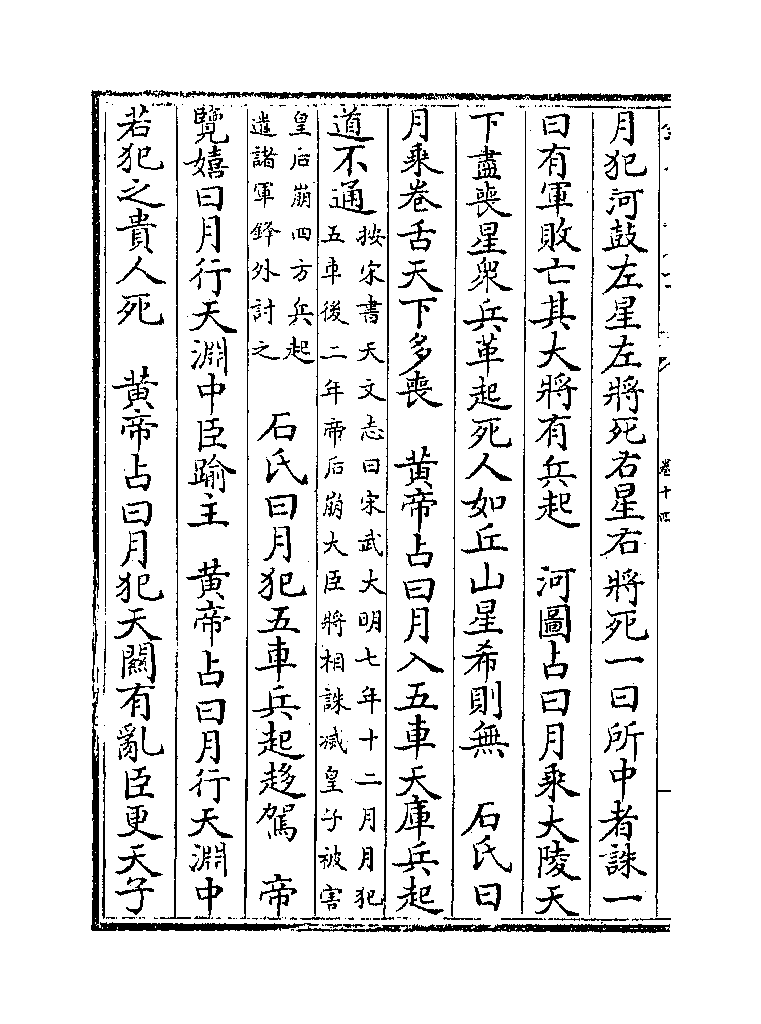 卷十四
月犯河鼓左星左將死右星右將死一曰所中者誅一
曰有軍敗亡其大將有兵起　河圖占曰月乘大陵天
下盡喪星衆兵革起死人如丘山星希則無　石氏曰
月乘卷舌天下多喪　黄帝占曰月入五車天庫兵起
道不通
按宋書天文志曰宋武大明七年十二月月犯
五車後二年帝后崩大臣將相誅滅皇子被害
皇后崩四方兵起
遣諸軍鋒外討之
石氏曰月犯五車兵起趍駕　帝
覽嬉曰月行天淵中臣踰主　黄帝占曰月行天淵中
若犯之貴人死　黄帝占曰月犯天闗有亂臣更天子